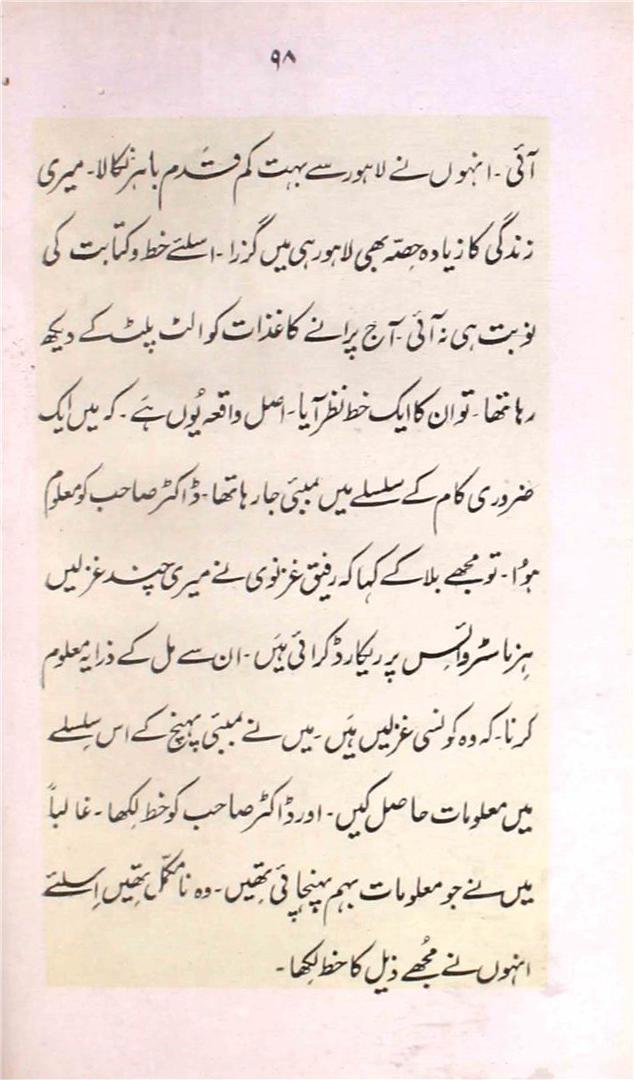 ۹۸
آئی۔ انہوں نے لاہور سے بہت کم قدم باہر نکالا۔ میری
زندگی کا زیادہ حصّہ بھی لاہور ہی میں گزرا۔ اسلئے خط و کتابت کی
نوبت ہی نہ آئی۔ آج پرانے کاغذات کو الٹ پلٹ کے دیکھ
رہا تھا۔ تو ان کا ایک خط نظر آیا۔ اصل واقعہ یُوں ہَے۔ کہ میں ایک
ضروری کام کے سلسلے میں بمبئی جا رہا تھا۔ ڈاکٹر صاحب کو معلوم
ہوُا۔ تو مجھے بلا کے کہا کہ رفیق غزنوی نے میری چند غزلیں
ہِز ماسٹر وائس پر ریکارڈ کرائی ہَیں۔ ان سے مل کے ذرا یہ معلوم
کرنا۔ کہ وہ کونسی غزلیں ہَیں۔ میں نے بمبئی پہنچ کے اس سِلسلے
میں معلومات حاصل کیں۔ اور ڈاکٹر صاحب کو خط لِکھا۔ غالباً
میں نے جو معلومات بہم پہنچائی تھِیں۔ وہ نا مکمّل تھِیں اِسلئے
انہوں نے مُجھے ذیل کا خط لِکھا۔